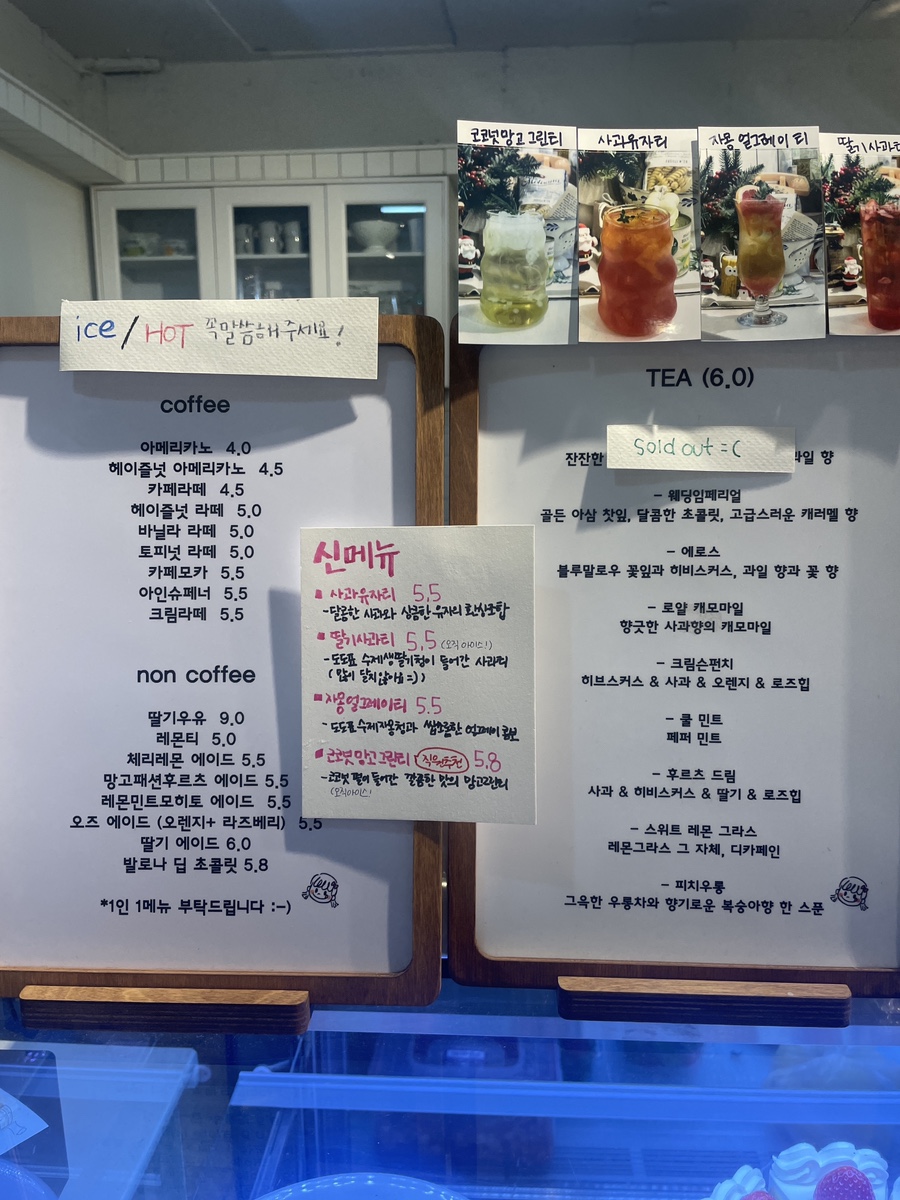 코코넛망고그린티
사과유자티
자몽얼그레이티
딸기사과티
ice / HOT 꼭말씀해주세요!
coffee
아메리카노 4.0
헤이즐넛 아메리카노 4.5
카페라떼 4.5
헤이즐넛 라떼 5.0
바닐라 라떼 5.0
토피넛 라떼 5.0
카페모카 5.5
아인슈페너 5.5
크림라떼 5.5
non coffee
딸기우유 9.0
레몬티 5.0
체리레몬 에이드 5.5
망고패션후르츠 에이드 5.5
레몬민트모히토 에이드 5.5
오즈 에이드 (오렌지+ 라즈베리) 5.5
딸기 에이드 6.0
발로나 딥 초콜릿 5.8
*1인 1메뉴 부탁드립니다 :-)
신메뉴
사과유자티 5.5
-달콤한 사과와 상콤한 유자의 환상조합
딸기사과티 5.5 (오직 아이스!)
-도도표 수제생딸기청이 들어간 사과티
(많이 달지않아요=))
자몽얼그레이티 5.5
-도도표수제자몽청과 쌉쏘롬한 얼그레이 콤보
코코넛망고그린티 직원추천 5.8
-코코넛 펄이 들어간 깔끔한 맛의 망고그린티
(오직아이스!
TEA (6.0)
Sold out =(
잔잔한 과일 향
- 웨딩임페리얼
골든 아삼 찻잎, 달콤한 초콜릿, 고급스러운 캐러멜 향
- 에로스
블루말로우 꽃잎과 히비스커스, 과일 향과 꽃 향
- 로얄 캐모마일
향긋한 사과향의 캐모마일
- 크림슨펀치
히브스커스 & 사과 & 오렌지 & 로즈힙
- 쿨 민트
페퍼 민트
- 후르츠 드림
사과 & 히비스커스 & 딸기 & 로즈힙
- 스위트 레몬 그라스
레몬그라스 그 자체, 디카페인
- 피치우롱
그윽한 우롱차와 향기로운 복숭아향 한 스푼